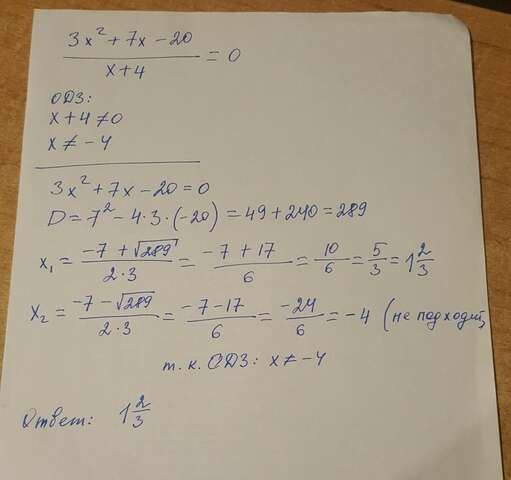 (3x² + 7x − 20)/(x + 4) = 0
ОДЗ:
x + 4 ≠ 0
x ≠ −4
3x² + 7x − 20 = 0
D = 7² − 4·3·(−20) = 49 + 240 = 289
x₁ = (−7 + √289)/(2·3) = (−7 + 17)/6 = 10/6 = 5/3 = 1 2/3
x₂ = (−7 − √289)/(2·3) = (−7 − 17)/6 = −24/6 = −4 (не подходит,
т.к. ОДЗ: x ≠ −4
Ответ: 1 2/3